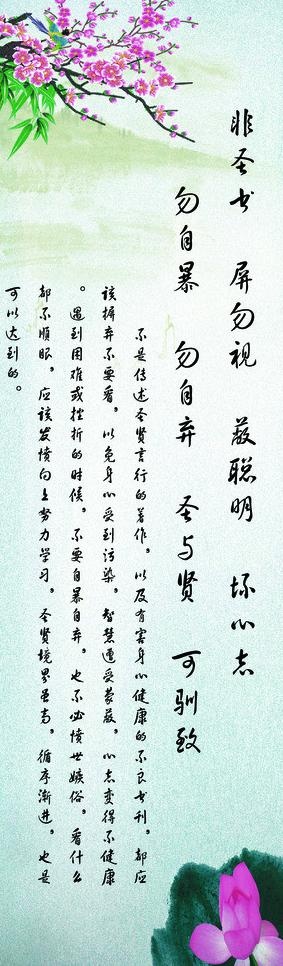 非圣书 屏勿视 蔽聪明 坏心志
勿自暴 勿自弃 圣与贤 可驯致
不是传述圣贤言行的著作，以及有害身心健康的不良书刊，都应
该摒弃不要看，以免身心受到污染，智慧遭受蒙蔽，心志变得不健康
。遇到困难或挫折的时候，不要自暴自弃，也不必愤世嫉俗，看什么
都不顺眼，应该发愤向上努力学习，圣贤境界虽高，循序渐进，也是
可以达到的。